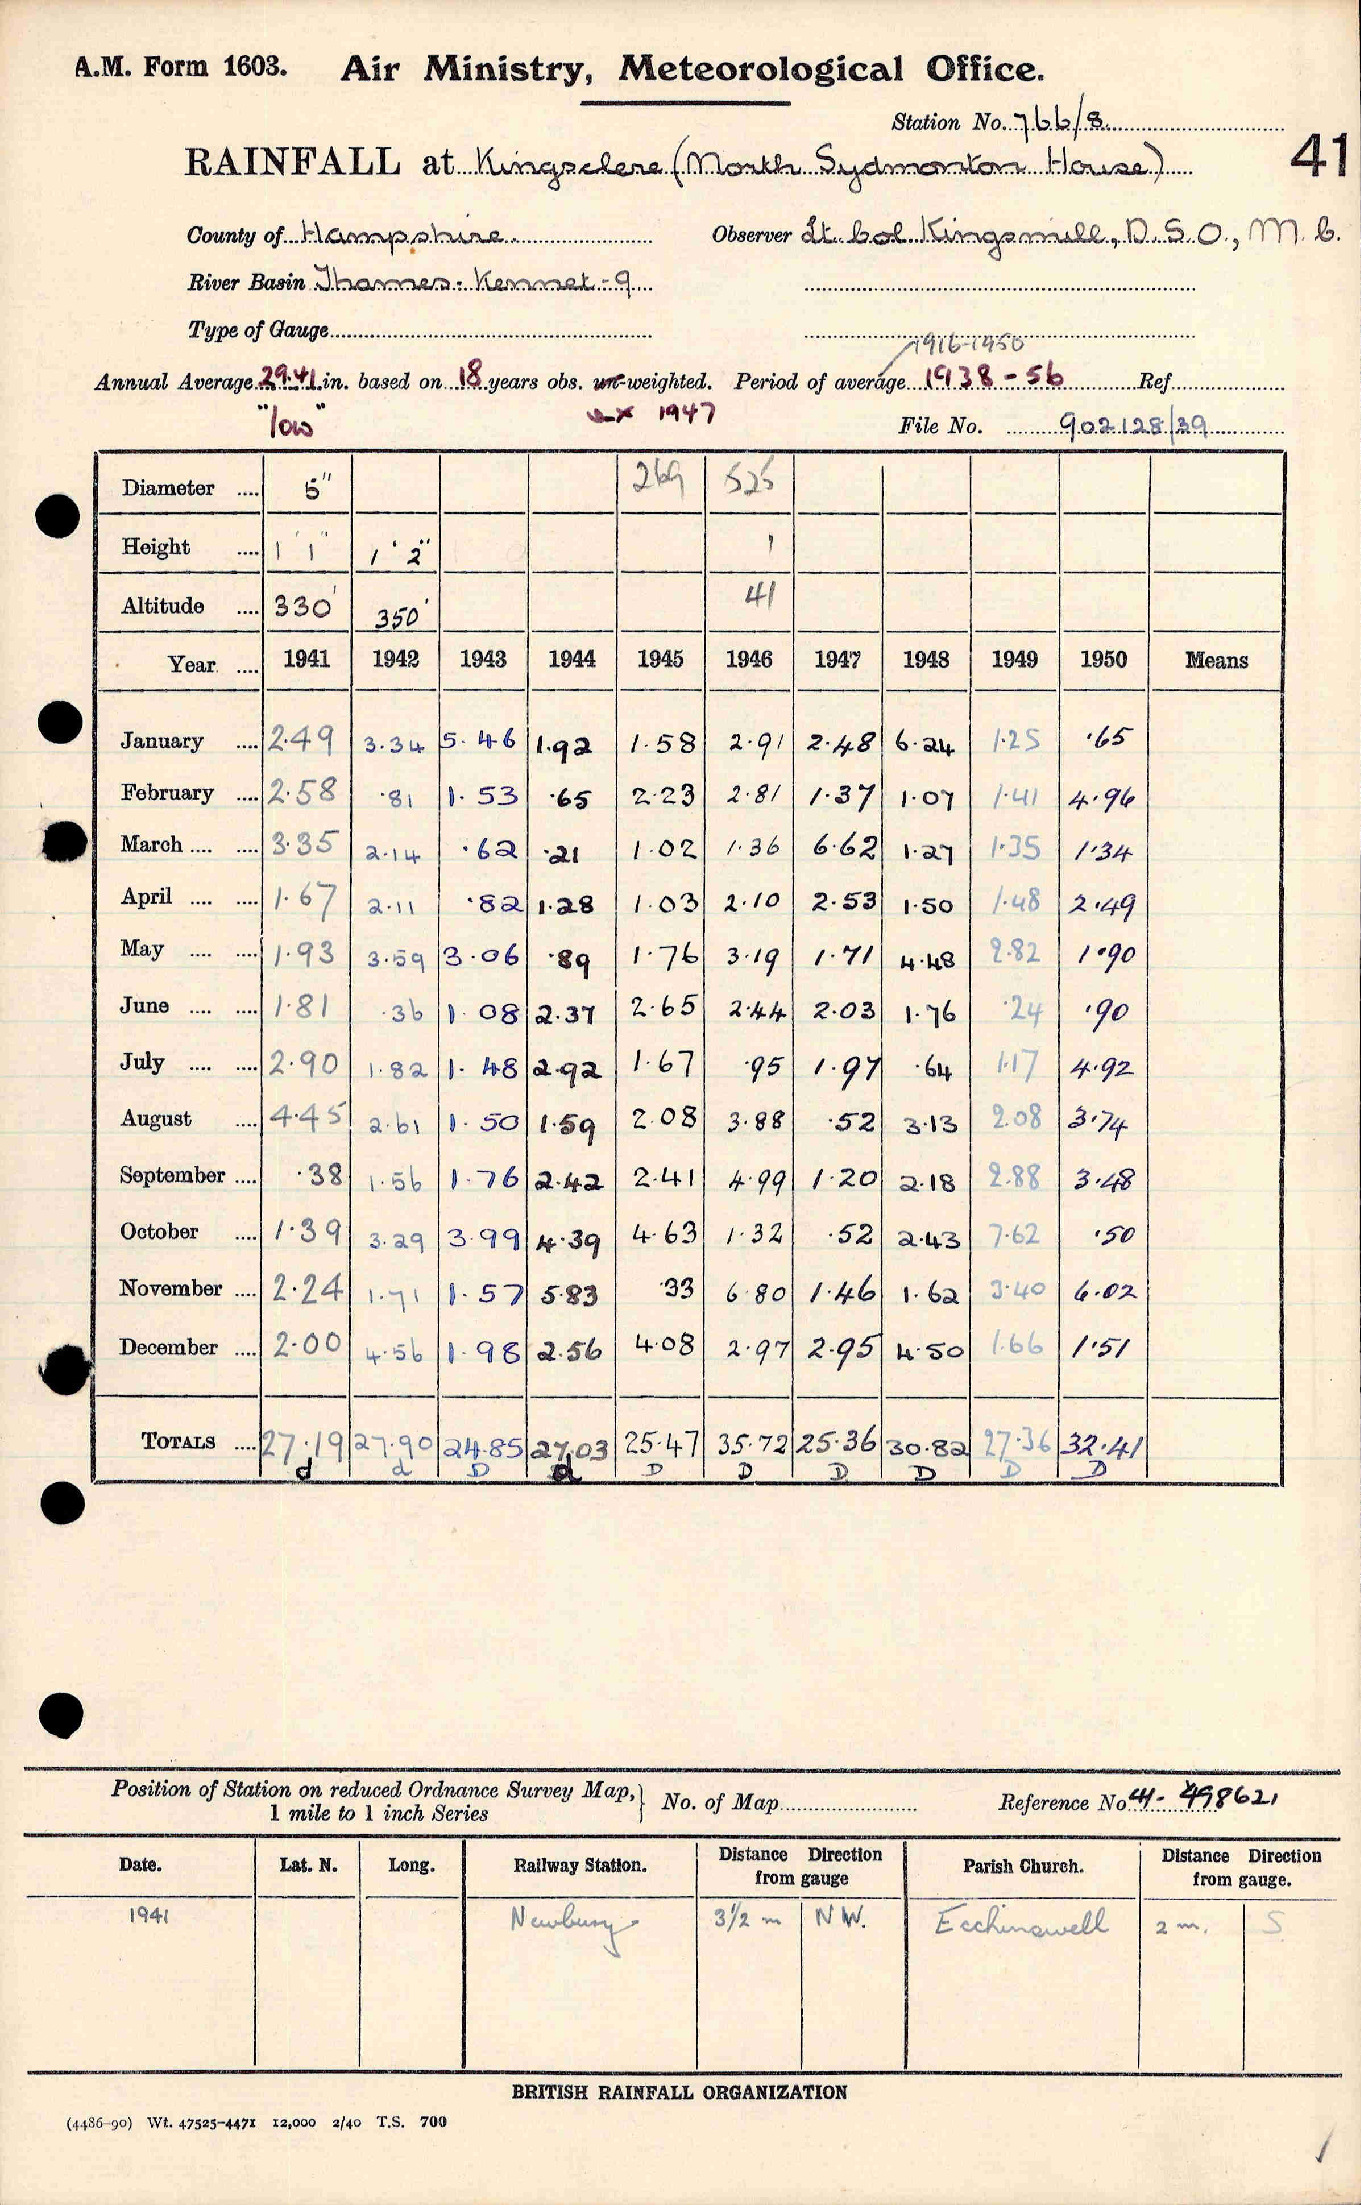 A.M. Form 1603. Air Ministry, Meteorological Office.
Station No. 766/8
RAINFALL at Kingsclere (North Sydmonton House) 41
County of Hampshire Observer Lt. Col Kingsmill, D.S.O., M.C.
River Basin Thames - Kennet - 9
Type of Gauge
1916-1950
Annual Average 29.41 in. based on 18 years obs. un-weighted. Period of average 1938-56 Ref.
"low" 1947
File No. 902128/39
Diameter .... 5" 269 525
Height .... 1' 1" 1' 2" 1
Altitude .... 330' 350' 41
Year .... 1941 1942 1943 1944 1945 1946 1947 1948 1949 1950 Means
January .... 2.49 3.34 5.46 1.92 1.58 2.91 2.48 6.24 1.25 .65
February .... 2.58 .81 1.53 .65 2.23 2.81 1.37 1.07 1.41 4.96
March .... .... 3.35 2.14 .62 .21 1.02 1.36 6.62 1.27 1.35 1.34
April .... .... 1.67 2.11 .82 1.28 1.03 2.10 2.53 1.50 1.48 2.49
May .... .... 1.93 3.59 3.06 .89 1.76 3.19 1.71 4.48 2.82 1.90
June .... .... 1.81 .36 1.08 2.37 2.65 2.44 2.03 1.76 .24 .90
July .... .... 2.90 1.82 1.48 2.92 1.67 .95 1.97 .64 1.17 4.92
August .... 4.45 2.61 1.50 1.59 2.08 3.88 .52 3.13 2.08 3.74
September .... .38 1.56 1.76 2.42 2.41 4.99 1.20 2.18 2.88 3.48
October .... 1.39 3.29 3.99 4.39 4.63 1.32 .52 2.43 7.62 .50
November .... 2.24 1.71 1.57 5.83 .33 6.80 1.46 1.62 3.40 6.02
December .... 2.00 4.56 1.98 2.56 4.08 2.97 2.95 4.50 1.66 1.51
TOTALS .... 27.19 27.90 24.85 27.03 25.47 35.72 25.36 30.82 27.36 32.41
d d D d D D D D D D
Position of Station on reduced Ordnance Survey Map, 1 mile to 1 inch Series } No. of Map Reference No. 41-498621
Date. Lat. N. Long. Railway Station. Distance Direction from gauge Parish Church. Distance Direction from gauge.
1941 Newbury 3 1/2 m NW. Ecchinswell 2 m. S
BRITISH RAINFALL ORGANIZATION
(4486-90) Wt. 47525-4471 12,000 2/40 T.S. 700